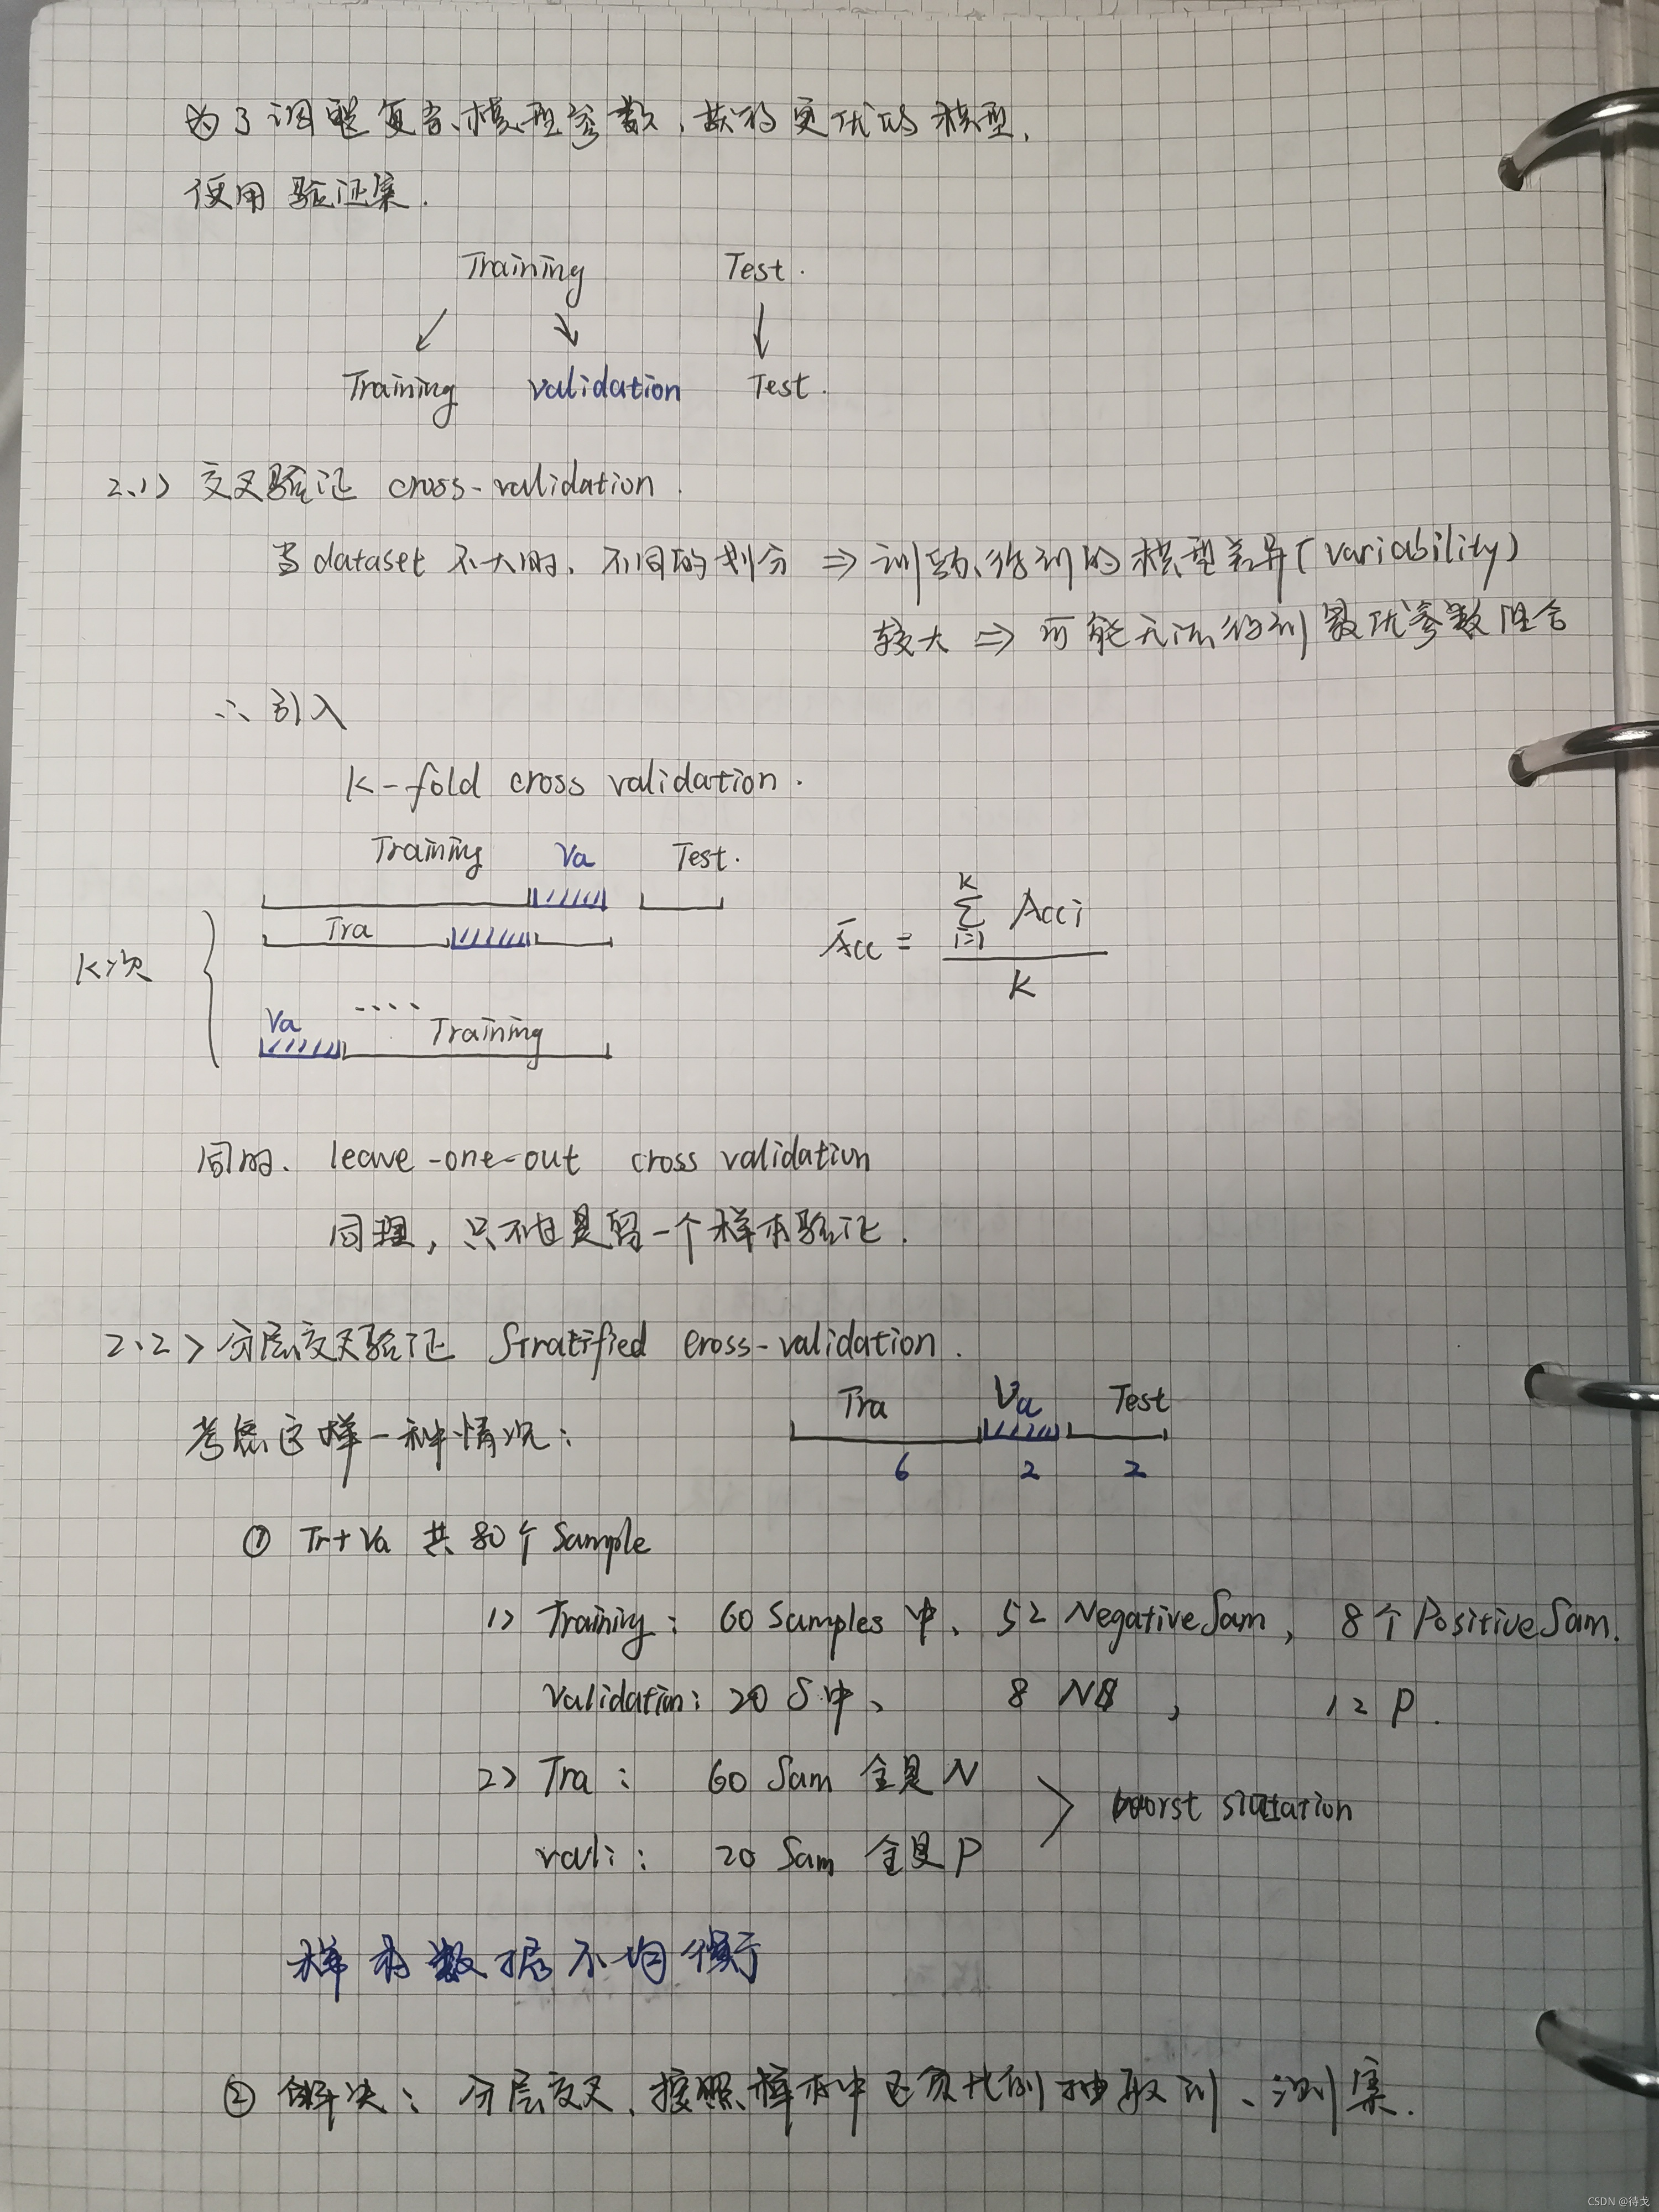 为了调整复杂模型参数,获得更优的模型,
使用验证集.
Training Test.
Training validation Test.
2.1> 交叉验证 cross-validation.
当 dataset 不大时, 不同的划分 ⇒ 训练得到的模型差异(variability)
较大 ⇒ 可能无法得到最优参数组合
∴ 引入
K-fold cross validation.
Training Va Test.
Tra
K次
Va .... Training
Acc = Σ(i=1→K) Acci / K
同时、 leave-one-out cross validation
同理, 只不过是留一个样本验证.
2.2> 分层交叉验证 Stratified cross-validation.
考虑这样一种情况:
Tra Va Test
6 2 2
① Tr+Va 共80个 Sample
1> Training: 60 Samples 中、 52 NegativeSam, 8个 PositiveSam.
Validation: 20 S中、 8 N, 12 P.
2> Tra: 60 Sam 全是N
vali: 20 Sam 全是P
worst situation
样本数据不均衡
② 解决: 分层交叉、按照样本中正负比例抽取训、测集.
CSDN @待戈